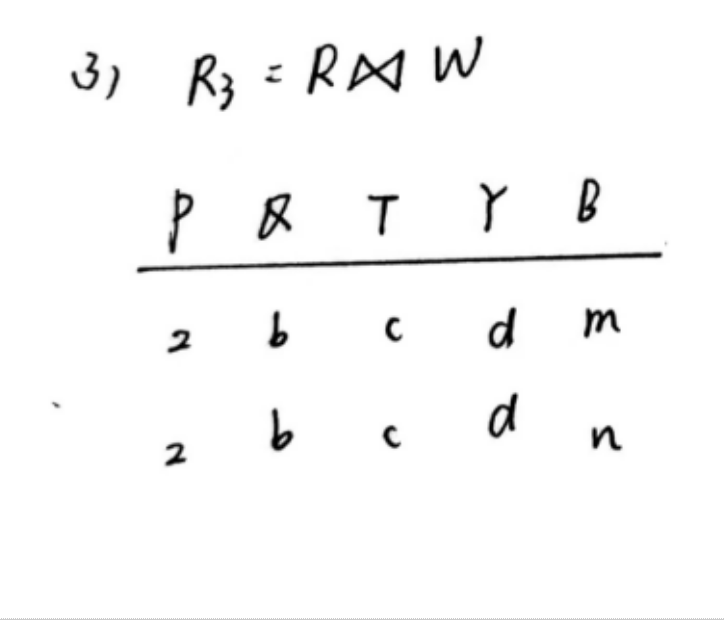 3) R3 = R⋈W
P Q T Y B
2 b c d m
2 b c d n